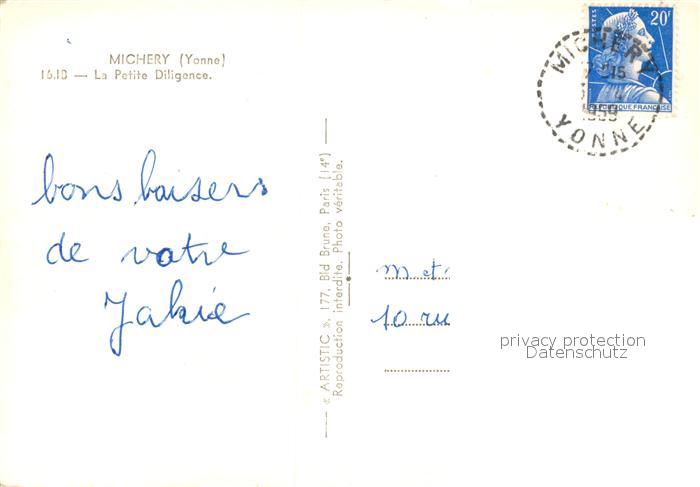 MICHERY (Yonne)
16.1B — La Petite Diligence.
bons baisers
de votre
Jakie
« ARTISTIC », 177, Bld Brune, Paris (14e)
Reproduction interdite. Photo véritable.
POSTES 20F
REPUBLIQUE FRANÇAISE
MICHERY
15
1959
YONNE
m et
10 ru
privacy protection
Datenschutz